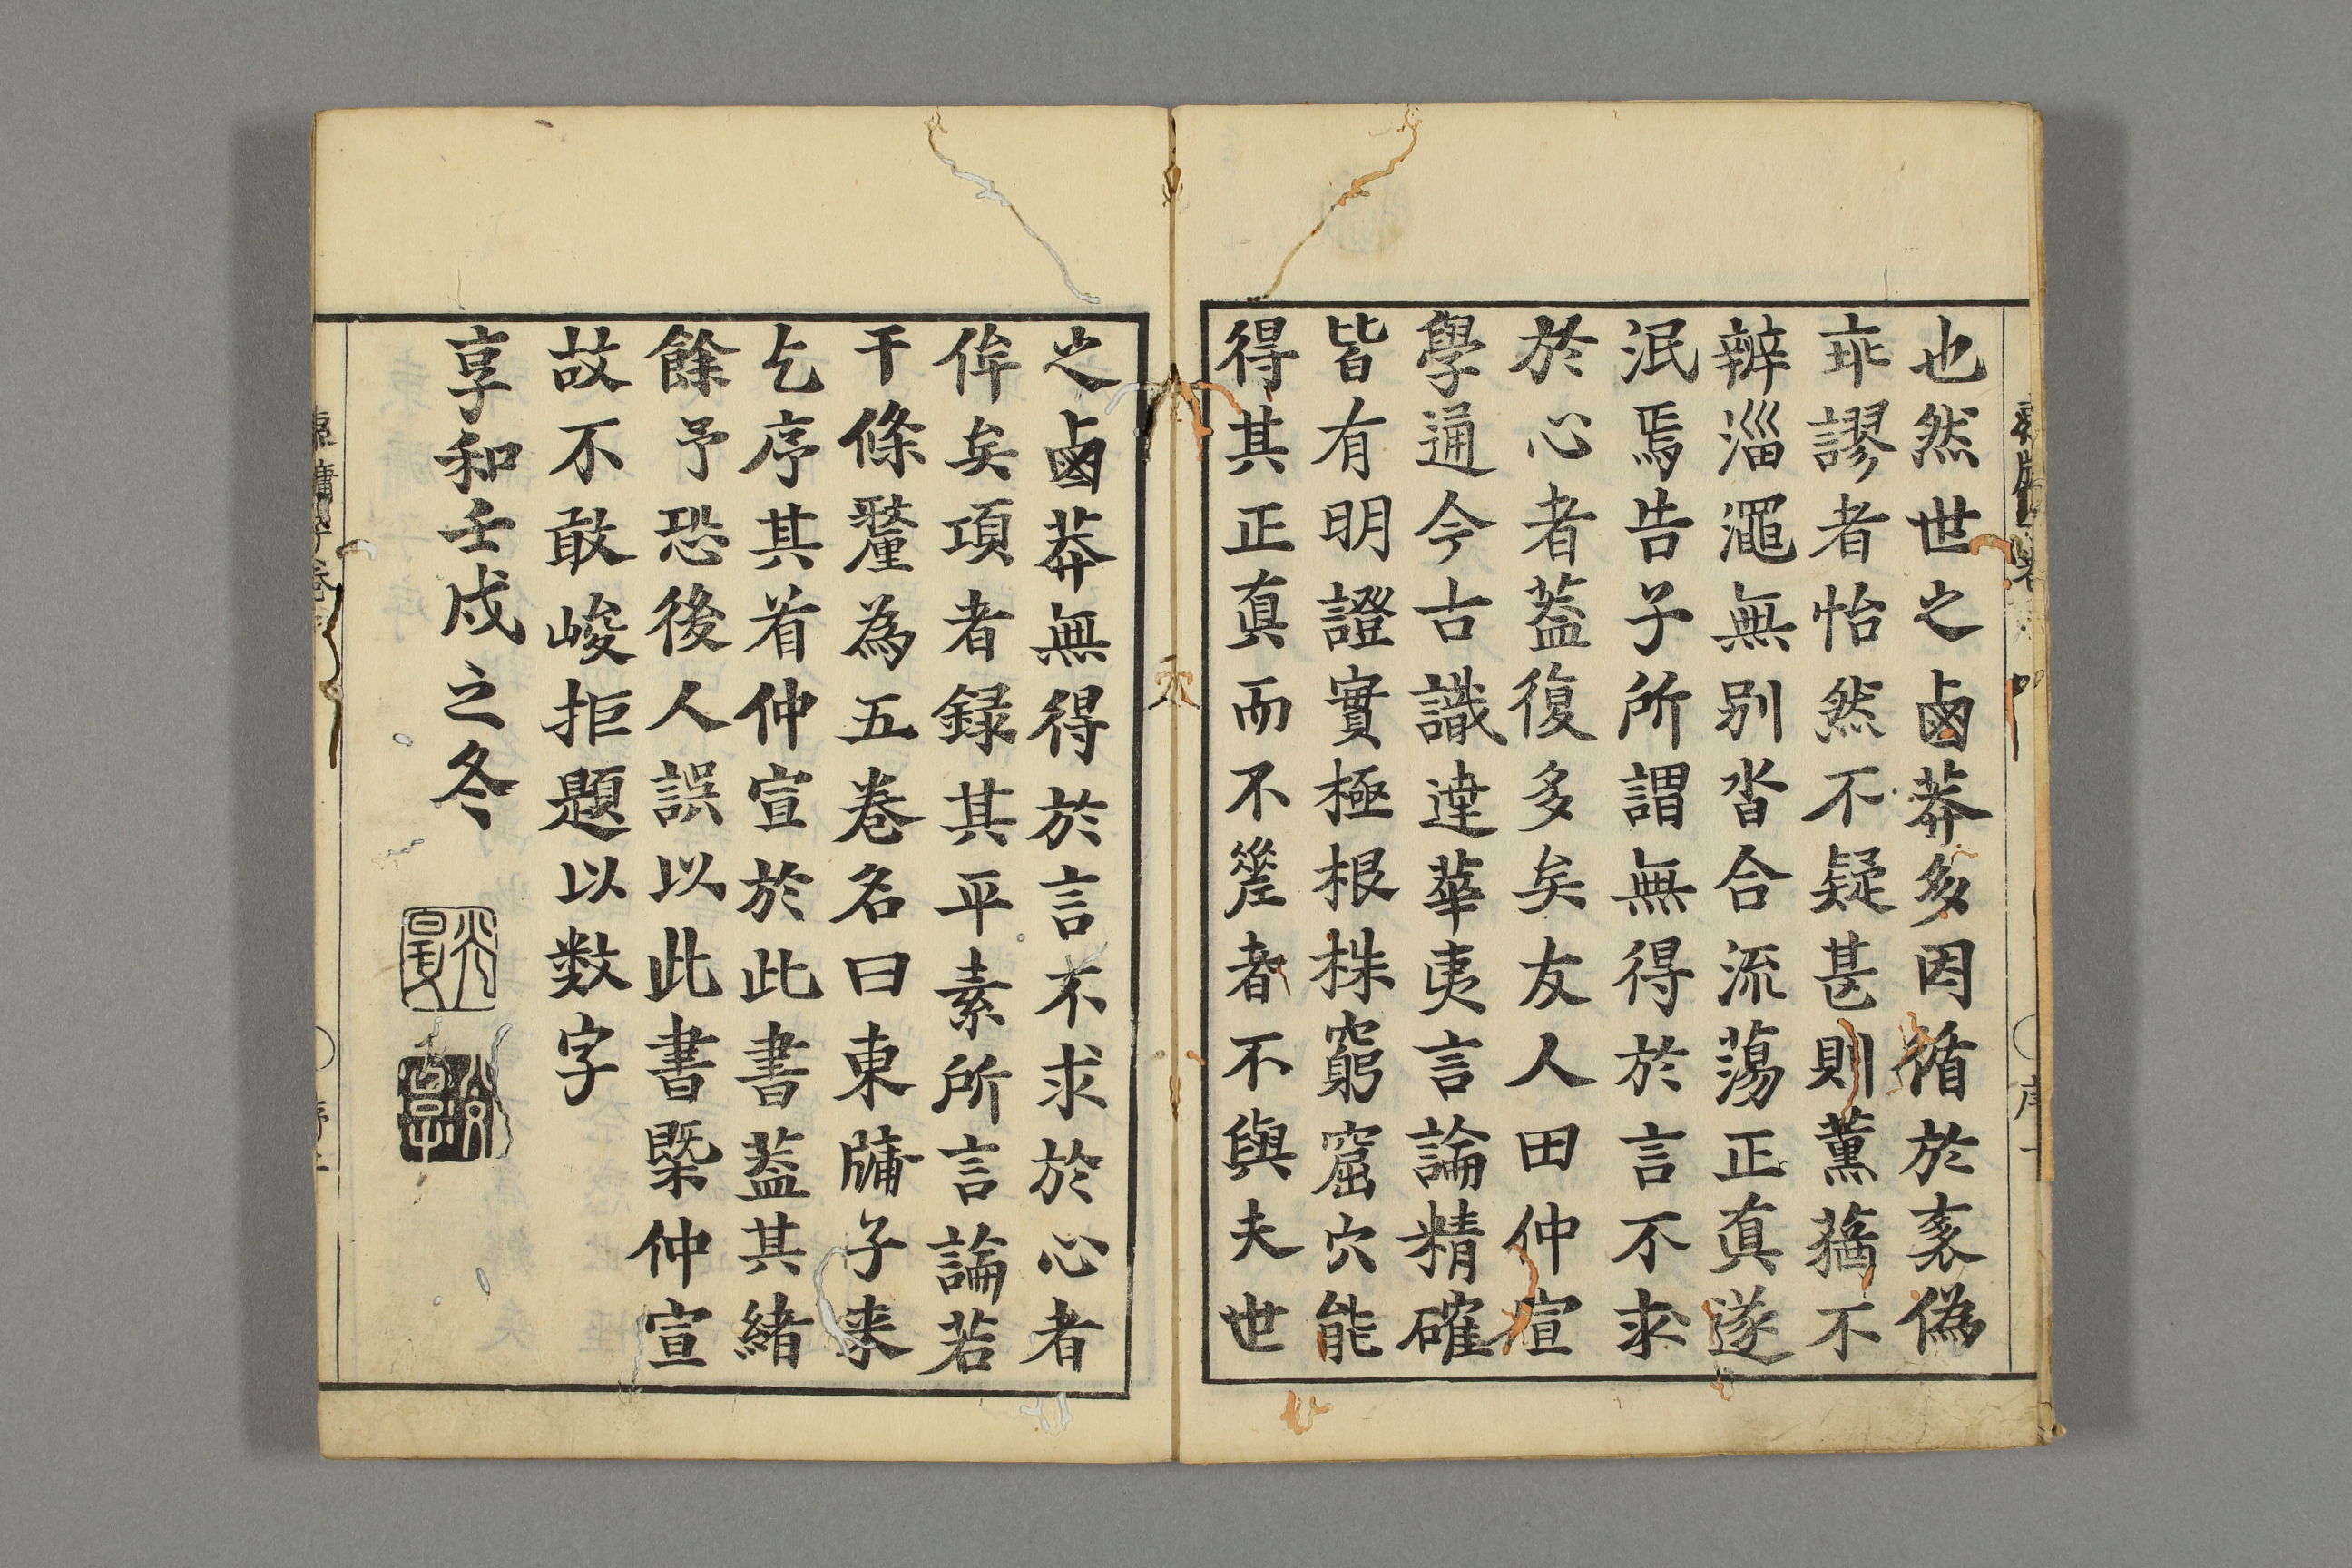 也然世之鹵莽多因循於袤偽
乖謬者怡然不疑甚則薫蕕不
辨淄澠無別沓合流蕩正真遂
泯焉告子所謂無得於言不求
於心者蓋復多矣友人田仲宣
學通今古識達華夷言論精確
皆有明證實極根株窮窟穴能
得其正真而不差者不與夫世
之鹵莽無得於言不求於心者
侔矣項者録其平素所言論若
干條釐為五巻名曰東牖子来
乞序其首仲宣於此書蓋其緒
餘予恐後人誤以此書槩仲宣
故不敢峻拒題以数字
享和壬戌之冬